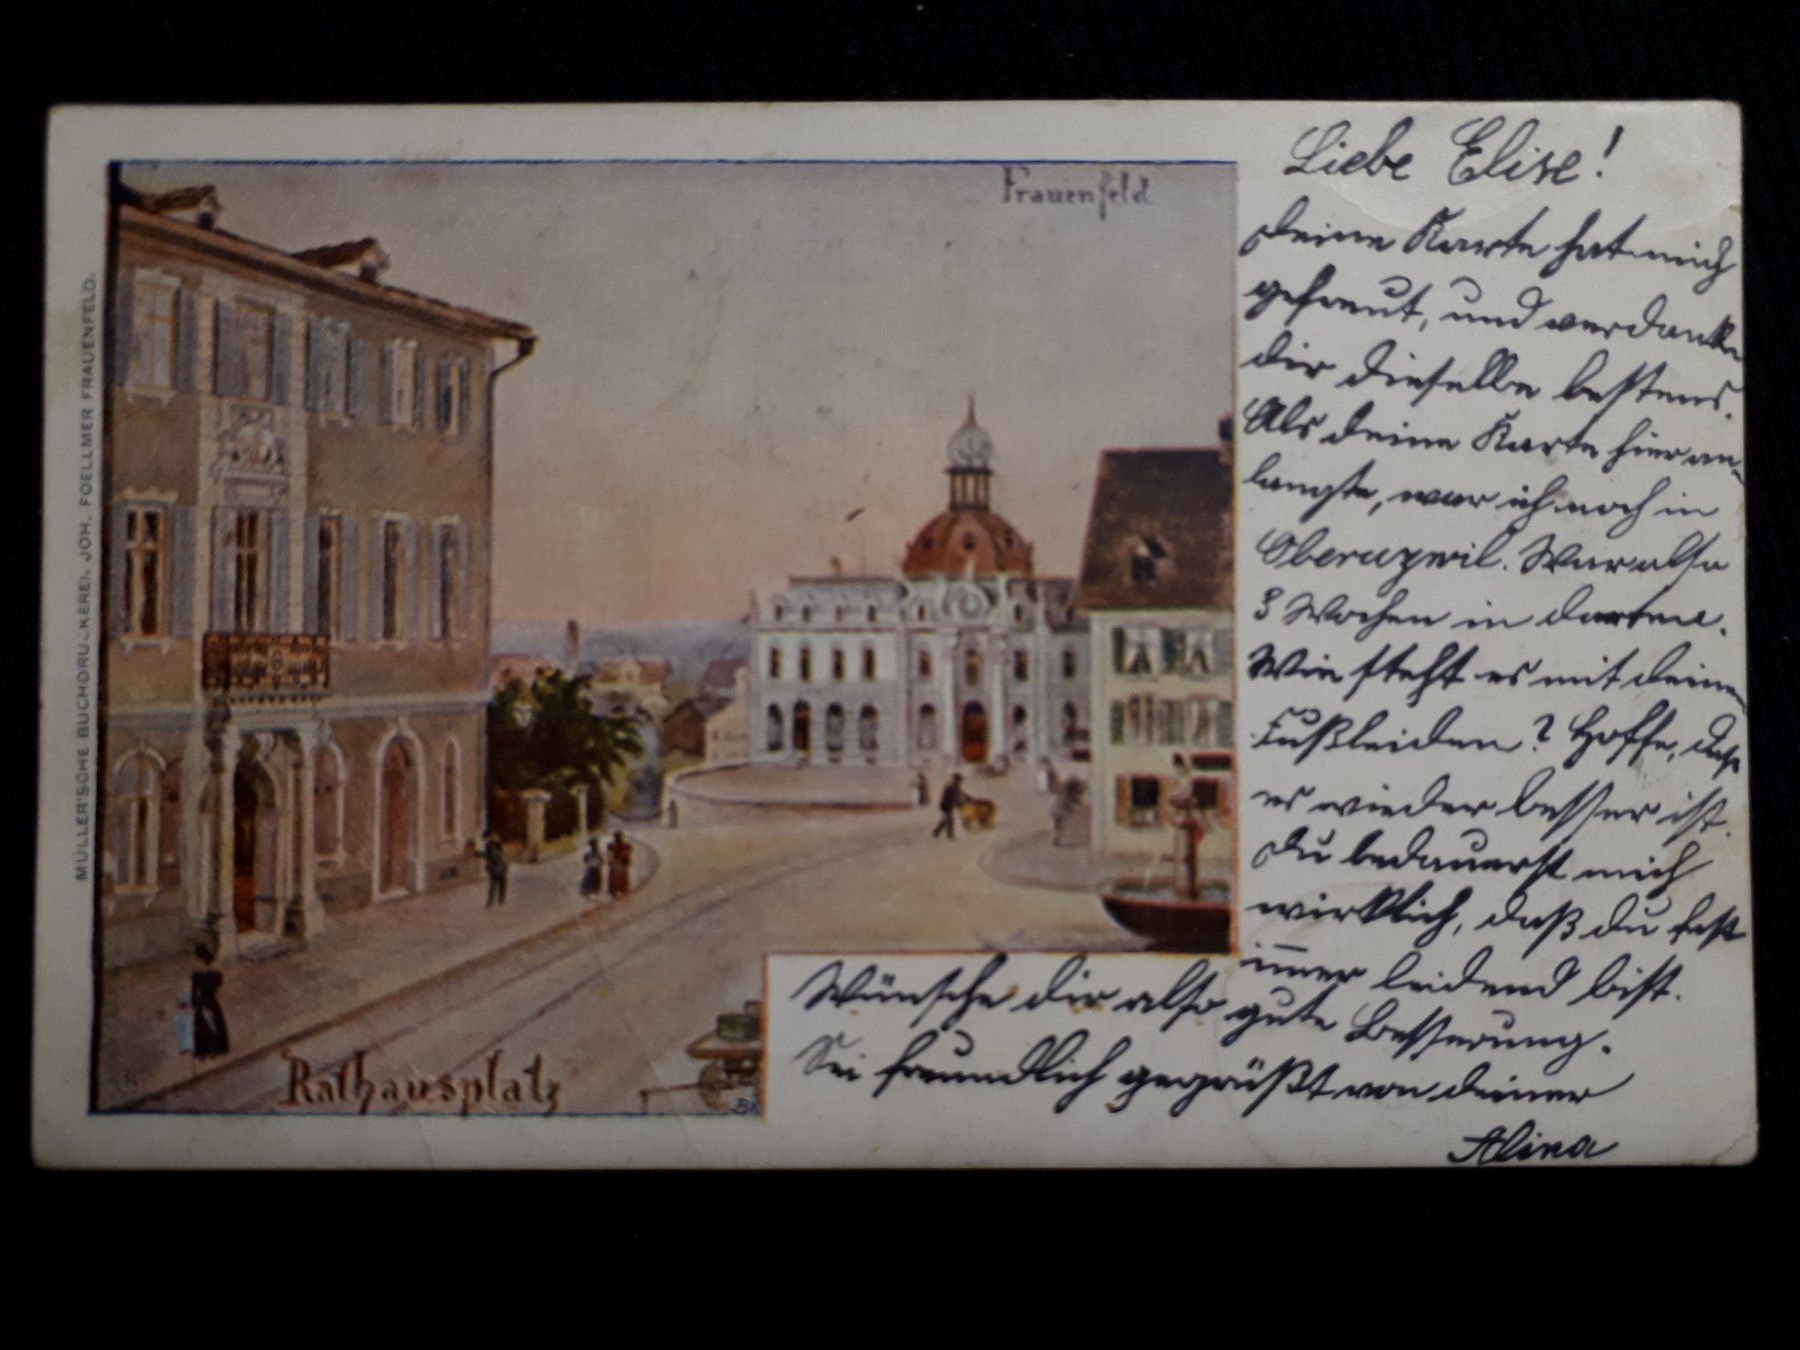 MÜLLER'SCHE BUCHDRUCKEREI, JOH. FOELLMER FRAUENFELD.
Frauenfeld
Rathausplatz
Liebe Elise!
Deine Karte hat mich
gefreut, und verdanke
dir dieselbe bestens.
Als deine Karte hier an-
langte, war ich noch in
Oberuzwil. War also
3 Wochen in
Wie steht es mit deinem
Fußleiden? Hoffe, daß
es wieder besser ist.
Du bedauerst mich
wirklich, daß du fast
im̅er leidend bist.
Wünsche dir also gute Besserung.
Sei freundlich gegrüßt von deiner
Alina